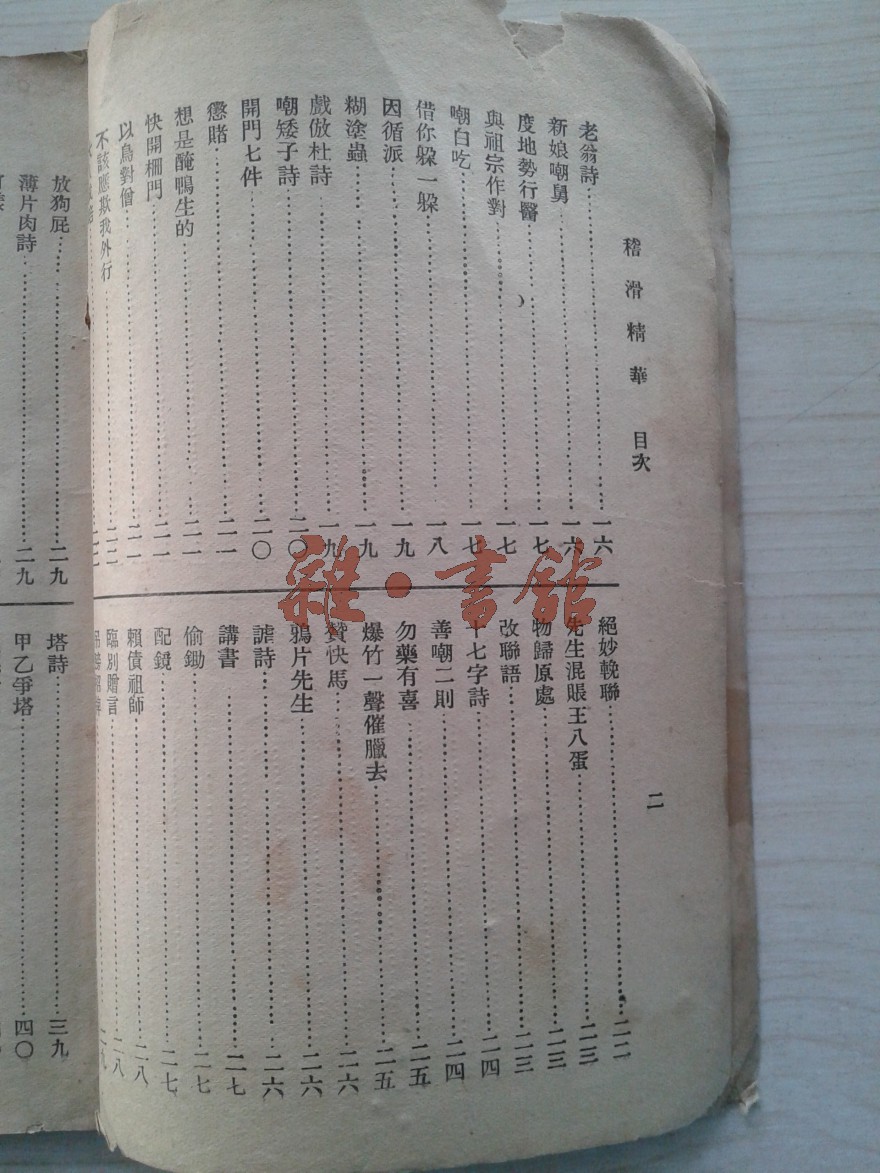 稽滑精華 目次
二
老翁詩……一六
新娘嘲舅……一六
度地勢行醫……一七
與祖宗作對……一七
嘲白吃……一七
借你躱一躱……一八
因循派……一九
糊塗蟲……一九
戲倣杜詩……一九
嘲矮子詩……二〇
開門七件……二〇
懲賭……二一
想是醃鴨生的……二一
快開柵門……二一
以鳥對僧……二一
不該應欺我外行……二二
絕妙輓聯……二二
先生混賬王八蛋……二三
物歸原處……二三
改聯語……二三
十七字詩……二四
善嘲二則……二四
勿藥有喜……二五
爆竹一聲催臘去……二五
贊快馬……二六
鴉片先生……二六
謔詩……二六
講書……二七
偷鋤……二七
配鏡……二七
賴債祖師……二八
臨別贈言……二八
放狗屁……二九
薄片肉詩……二九
塔詩……三九
甲乙爭塔……四〇
雜·書館